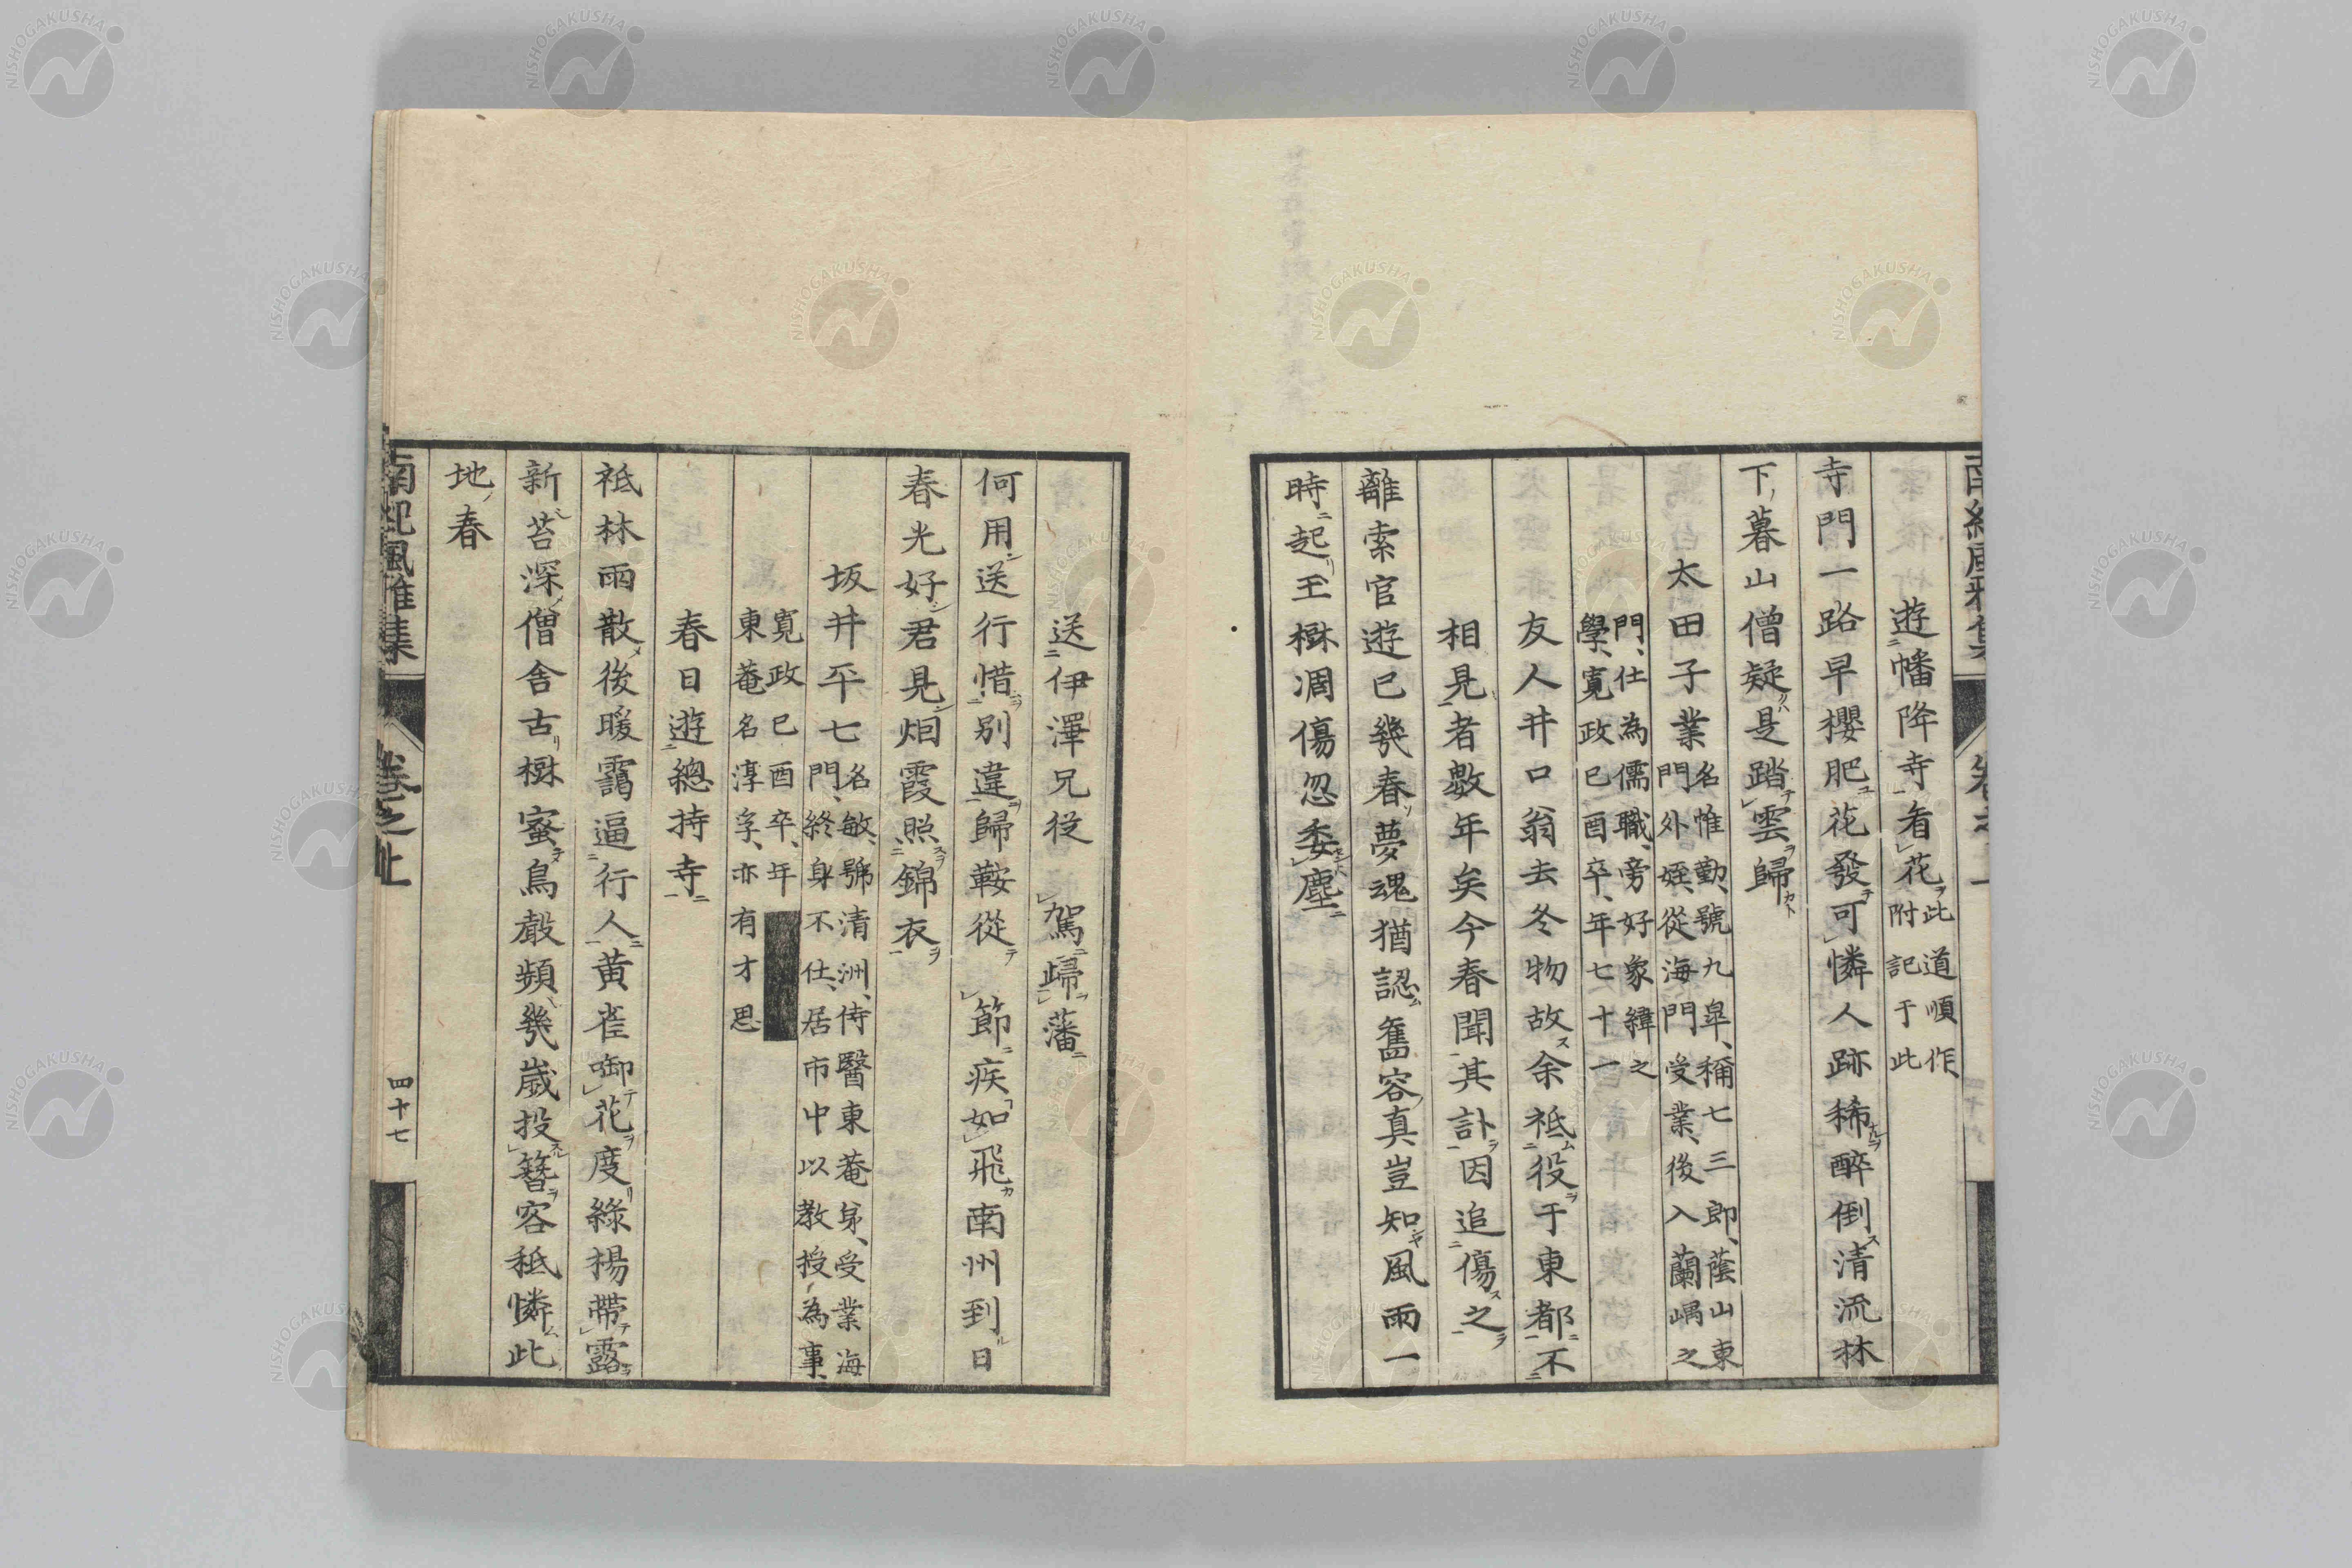 遊幡降寺看花此道順作、
附記于此
寺門一路早櫻肥花發可憐人跡稀醉倒清流林
下暮山僧疑是踏雲歸
太田子業名惟勤、號九皐、稱七三郎、蔭山東
門外姪、從海門受業、後入蘭嵎之
門、仕為儒職、旁好象緯之
學、寬政己酉卒、年七十一
友人井口翁去冬物故余祗役于東都不
相見者數年矣今春聞其訃因追傷之
離索官遊已幾春夢魂猶認舊容真豈知風雨一
時起玉樹凋傷忽委塵
送伊澤兄從 駕歸藩
何用送行惜別違歸鞍從 節疾如飛南州到日
春光好君見烟霞照錦衣
坂井平七名敏、號清洲、侍醫東菴弟、受業海
門、終身不仕、居市中以教授為事、
寬政己酉卒、年
東菴名淳孚、亦有才思
春日遊總持寺
祗林雨散後暖靄逼行人黃雀啣花度綠楊帶露
新苔深僧舍古樹蜜鳥聲頻幾歲投簪客秪憐此
地春
南紀風雅集
卷之
四十七